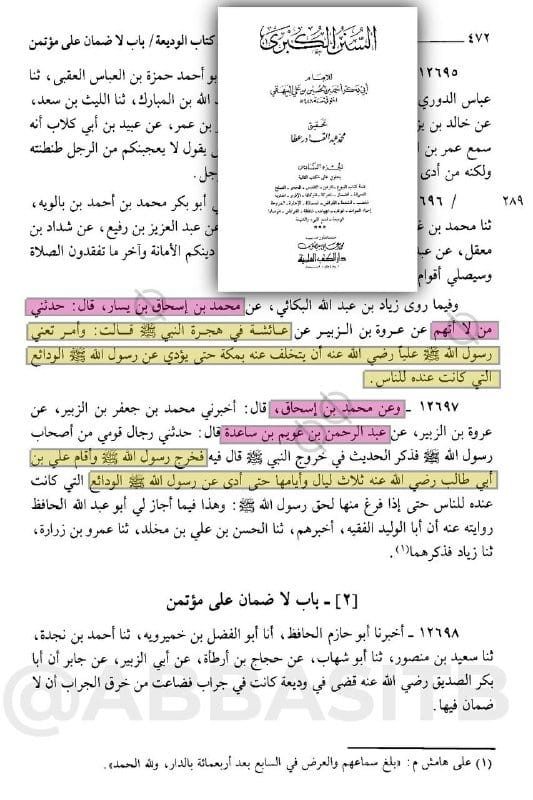 ٤٧٢
كتاب الوديعة / باب لا ضمان على مؤتمن
السنن الكبرى
للإمام
أبي بكر أحمد بن الحسين بن علي البيهقي
تحقيق
محمد عبد القادر عطا
دار الكتب العلمية
١٢٦٩٥
بو أحمد حمزة بن العباس العقبى، ثنا
عباس الدوري
الله بن المبارك، ثنا الليث بن سعد،
عن خالد بن يز
بن عمر، عن عبيد بن أبي كلاب أنه
سمع عمر بن
يقول لا يعجبنكم من الرجل طنطنته
ولكنه من أدى
رجل.
٢٨٩
/ ٦٩٦
أبي أبو بكر محمد بن أحمد بن بالويه،
ثنا محمد بن غ
عن عبد العزيز بن رفيع، عن شداد بن
معقل، عن عبد
دينكم الأمانة وآخر ما تفقدون الصلاة
وسيصلي أقوام
وفيما روى زياد بن عبد الله البكائي، عن محمد بن إسحاق بن يسار، قال: حدثني
من لا أتهم عن عروة بن الزبير عن عائشة في هجرة النبي ﷺ قالت: وأمر تعني
رسول الله ﷺ علياً رضي الله عنه أن يتخلف عنه بمكة حتى يؤدي عن رسول الله ﷺ الودائع
التي كانت عنده للناس.
١٢٦٩٧ ـ وعن محمد بن إسحاق، قال: أخبرني محمد بن جعفر بن الزبير، عن
عروة بن الزبير، عن عبد الرحمن بن عويم بن ساعدة قال: حدثني رجال قومي من أصحاب
رسول الله ﷺ فذكر الحديث في خروج النبي ﷺ قال فيه فخرج رسول الله ﷺ وأقام علي بن
أبي طالب رضي الله عنه ثلاث ليال وأيامها حتى أدى عن رسول الله ﷺ الودائع التي كانت
عنده للناس حتى إذا فرغ منها لحق رسول الله ﷺ: وهذا فيما أجاز لي أبو عبد الله الحافظ
روايته عنه أن أبا الوليد الفقيه، أخبرهم، ثنا الحسن بن علي بن مخلد، ثنا عمرو بن زرارة،
ثنا زياد فذكرهما(١).
[٢] ـ باب لا ضمان على مؤتمن
١٢٦٩٨ ـ أخبرنا أبو حازم الحافظ، أنا أبو الفضل بن خميرويه، ثنا أحمد بن نجدة،
ثنا سعيد بن منصور، ثنا أبو شهاب، عن حجاج بن أرطأة، عن أبي الزبير، عن جابر أن أبا
بكر الصديق رضي الله عنه قضى في وديعة كانت في جراب فضاعت من خرق الجراب أن لا
ضمان فيها.
@ABBASITB
(١) على هامش م: «بلغ سماعهم والعرض في السابع بعد أربعمائة بالدار، ولله الحمد».